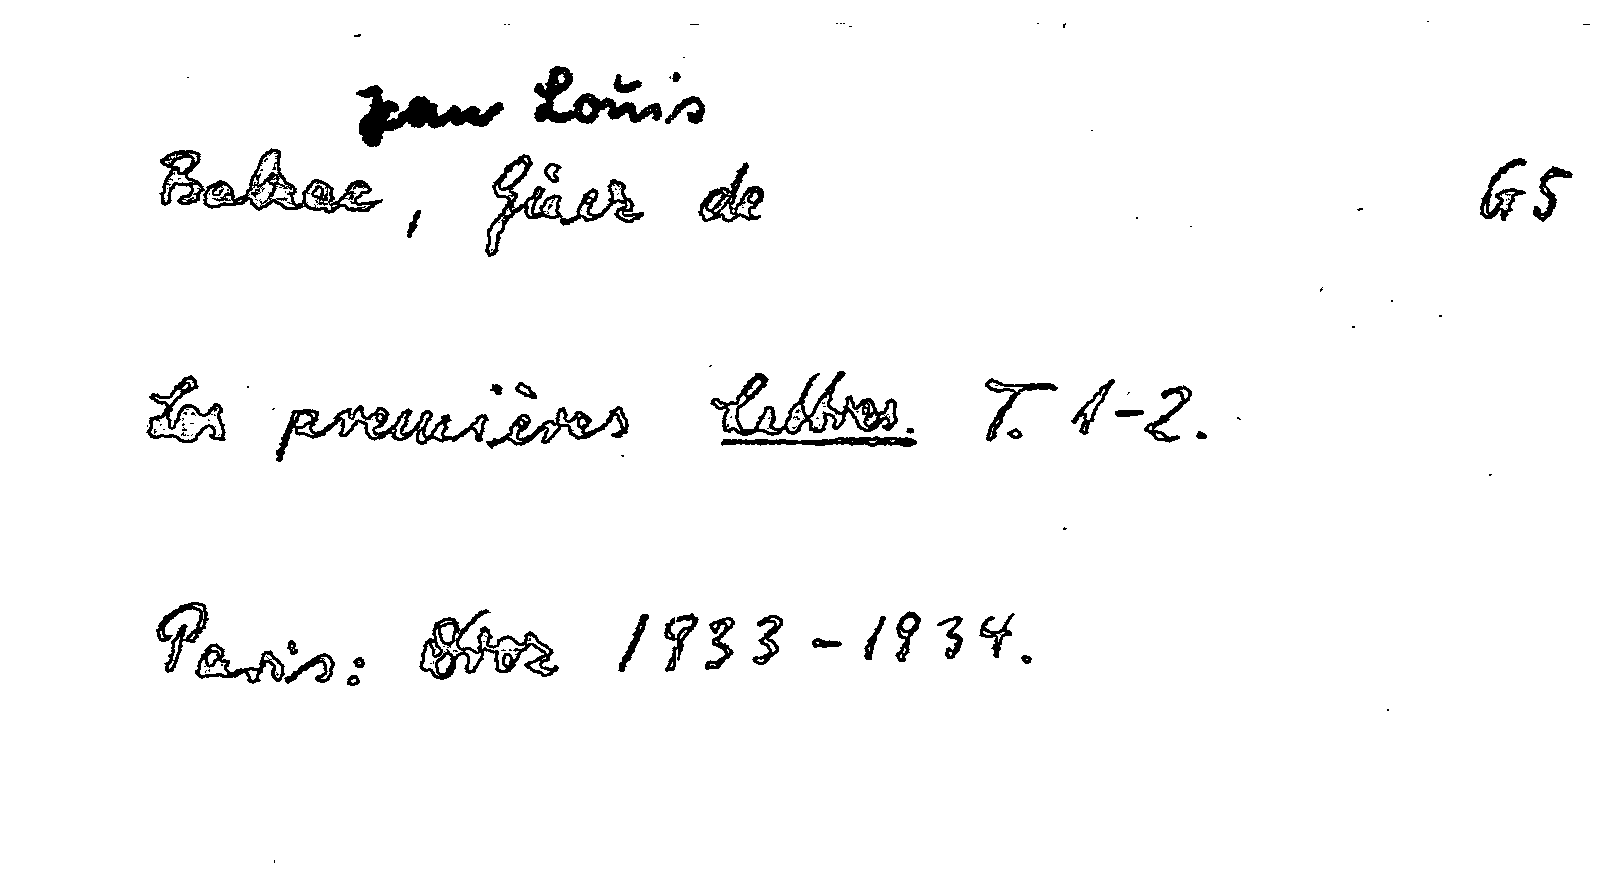 Jean Louis
Balzac, Guez de G5
Les premières lettres. T. 1-2.
Paris: Droz 1933-1934.